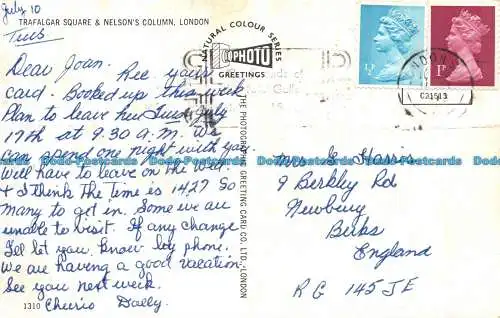 July 10
TRAFALGAR SQUARE & NELSON'S COLUMN, LONDON
Tues
Dear Joan. Rec your
card. Booked up this week
Plan to leave her Tues July
17th at 9.30 A.M. We
can spend one night with you.
Will have to leave on the Wed.
& I think the time is 1427 So
many to get in. Some we are
unable to visit. If any change
I'll let you know by phone.
We are having a good vacation.
See you next week.
Cheerio Dally.
1310
NATURAL COLOUR SERIES
PHOTO
GREETINGS
THE PHOTOGRAPHIC GREETING CARD CO. LTD., LONDON
½P
1P
Mrs G Harris
9 Berkley Rd
Newbury
Berks
England
RG 145JE
Postcards
Postcards
Postcards